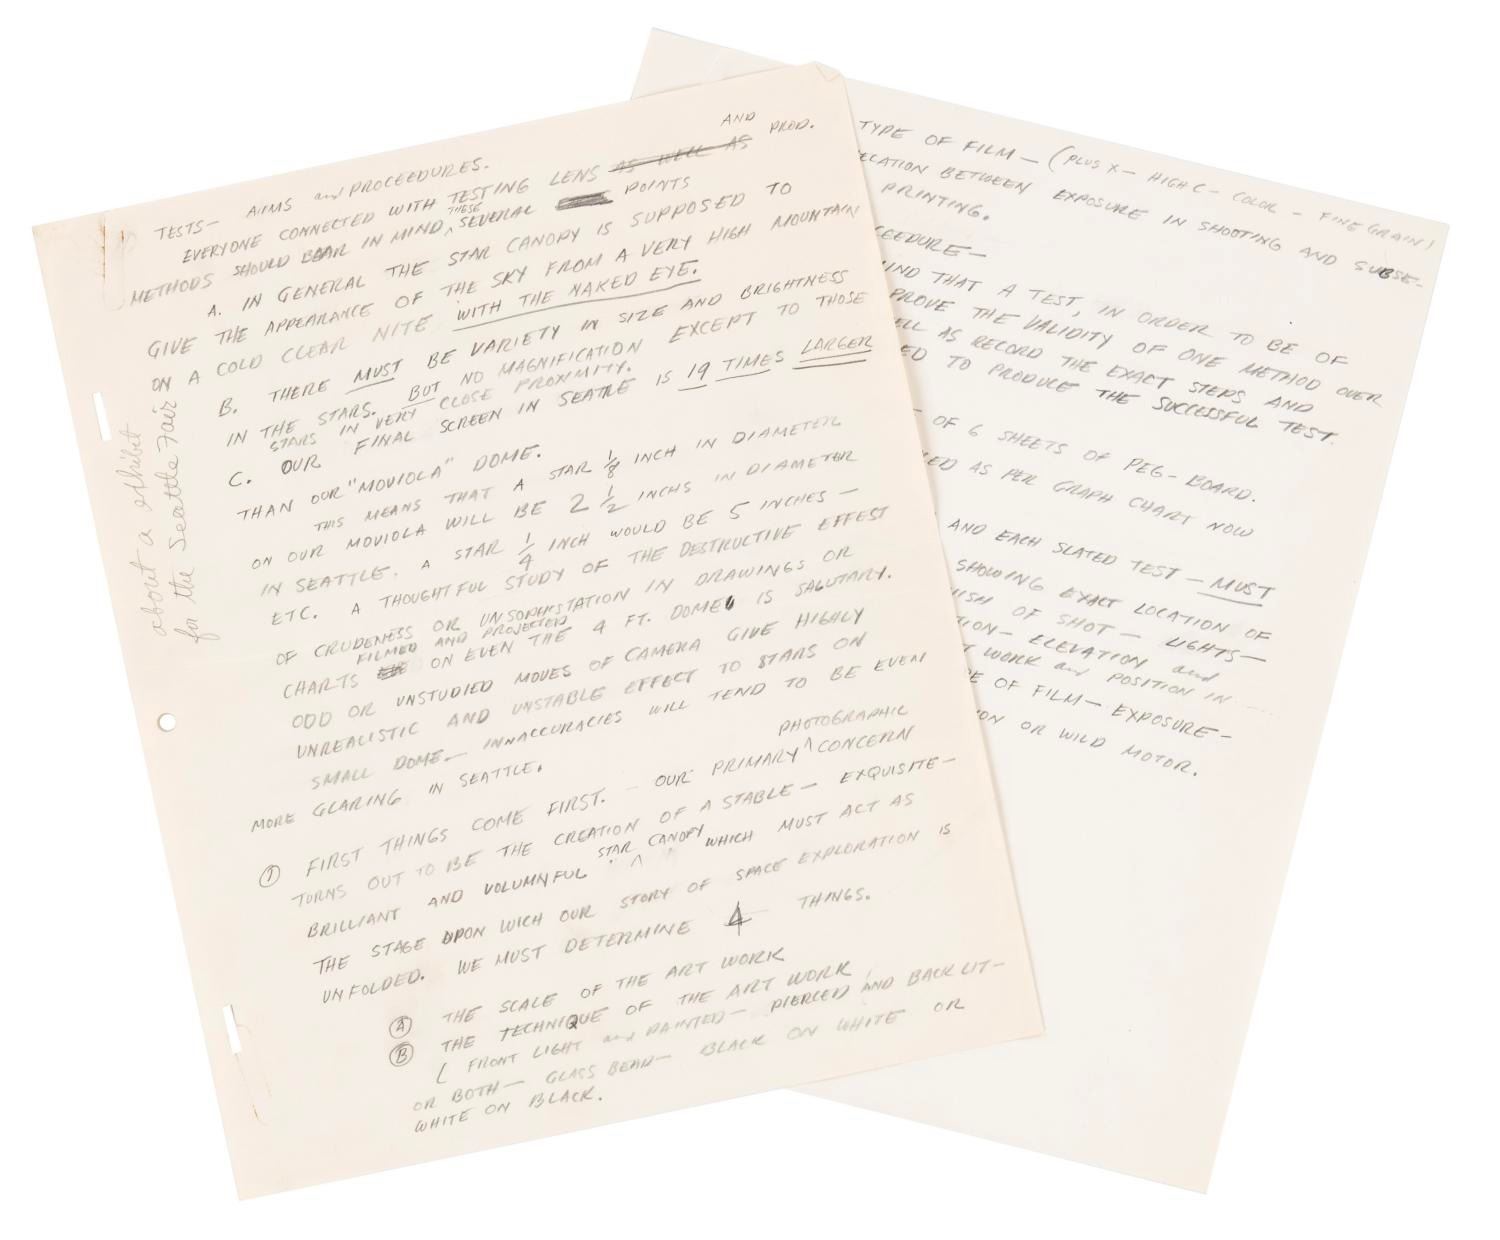 TESTS— AIMS and PROCEEDURES.
EVERYONE CONNECTED WITH TESTING LENS AS WELL AS AND PROD.
METHODS SHOULD BEAR IN MIND THESE SEVERAL POINTS
A. IN GENERAL THE STAR CANOPY IS SUPPOSED TO
GIVE THE APPEARANCE OF THE SKY FROM A VERY HIGH MOUNTAIN
ON A COLD CLEAR NITE WITH THE NAKED EYE.
B. THERE MUST BE VARIETY IN SIZE AND BRIGHTNESS
IN THE STARS. BUT NO MAGNIFICATION EXCEPT TO THOSE
STARS IN VERY CLOSE PROXIMITY.
C. OUR FINAL SCREEN IN SEATLE IS 19 TIMES LARGER
THAN OUR "MOVIOLA" DOME.
THIS MEANS THAT A STAR 1/8 INCH IN DIAMETER
ON OUR MOVIOLA WILL BE 2 1/2 INCHS IN DIAMETER
IN SEATTLE. A STAR 1/4 INCH WOULD BE 5 INCHES —
ETC. A THOUGHTFUL STUDY OF THE DESTRUCTIVE EFFEST
OF CRUDENESS OR UNSOPHISTATION IN DRAWINGS OR
CHARTS FILMED AND PROJECTED ON EVEN THE 4 FT. DOME IS SALUTARY.
ODD OR UNSTUDIED MOVES OF CAMERA GIVE HIGHLY
UNREALISTIC AND UNSTABLE EFFECT TO STARS ON
SMALL DOME— INNACCURACIES WILL TEND TO BE EVEN
MORE GLARING IN SEATTLE.
① FIRST THINGS COME FIRST. — OUR PRIMARY PHOTOGRAPHIC CONCERN
TURNS OUT TO BE THE CREATION OF A STABLE — EXQUISITE —
BRILLIANT AND VOLUMNFUL STAR CANOPY WHICH MUST ACT AS
THE STAGE UPON WICH OUR STORY OF SPACE EXPLORATION IS
UNFOLDED. WE MUST DETERMINE 4 THINGS.
Ⓐ THE SCALE OF THE ART WORK
Ⓑ THE TECHNIQUE OF THE ART WORK
( FRONT LIGHT and PAINTED — PIERCED AND BACK LIT —
OR BOTH — GLASS BEAD — BLACK ON WHITE OR
WHITE ON BLACK.
about a exhibit
for the Seattle Fair
TYPE OF FILM — (PLUS X — HIGH C — COLOR — FINE GRAIN)
ELATION BETWEEN EXPOSURE IN SHOOTING AND SUBSE-
PRINTING.
CEEDURE —
IND THAT A TEST, IN ORDER TO BE OF
PROVE THE VALIDITY OF ONE METHOD OVER
ELL AS RECORD THE EXACT STEPS AND
ED TO PRODUCE THE SUCCESSFUL TEST.
— OF 6 SHEETS OF PEG-BOARD.
LED AS PER GRAPH CHART NOW
AND EACH SLATED TEST — MUST
SHOWING EXACT LOCATION OF
ISH OF SHOT — LIGHTS —
TION — ELEVATION and
T WORK and POSITION IN
PE OF FILM — EXPOSURE —
ION OR WILD MOTOR.